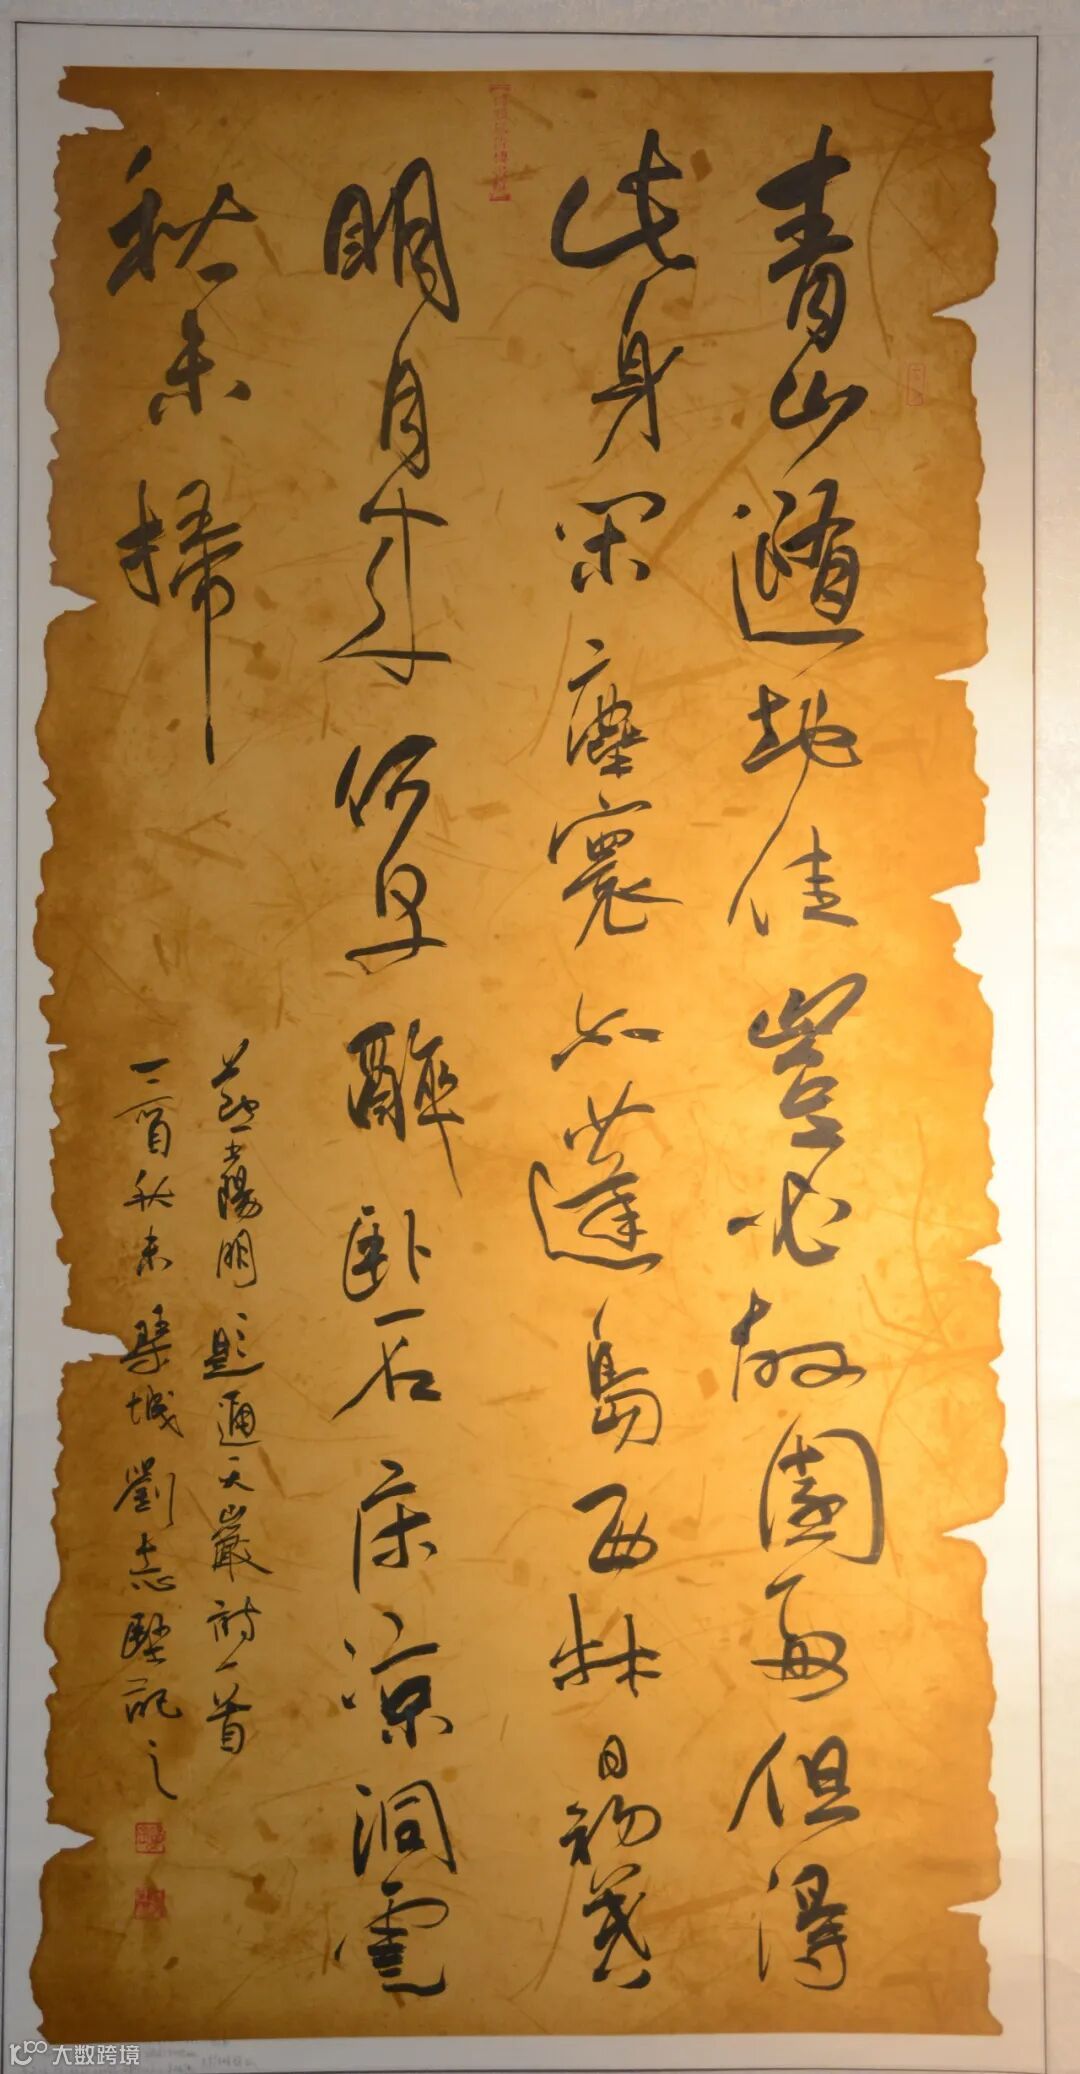 青山隨地佳豈必故園好但得
此身閑塵寰亦蓬島西林日初暮
明月來何早醉卧石床凉洞雲
秋未掃
王陽明題通天巖詩一首
秋末
城劉志堅記之
大数跨境